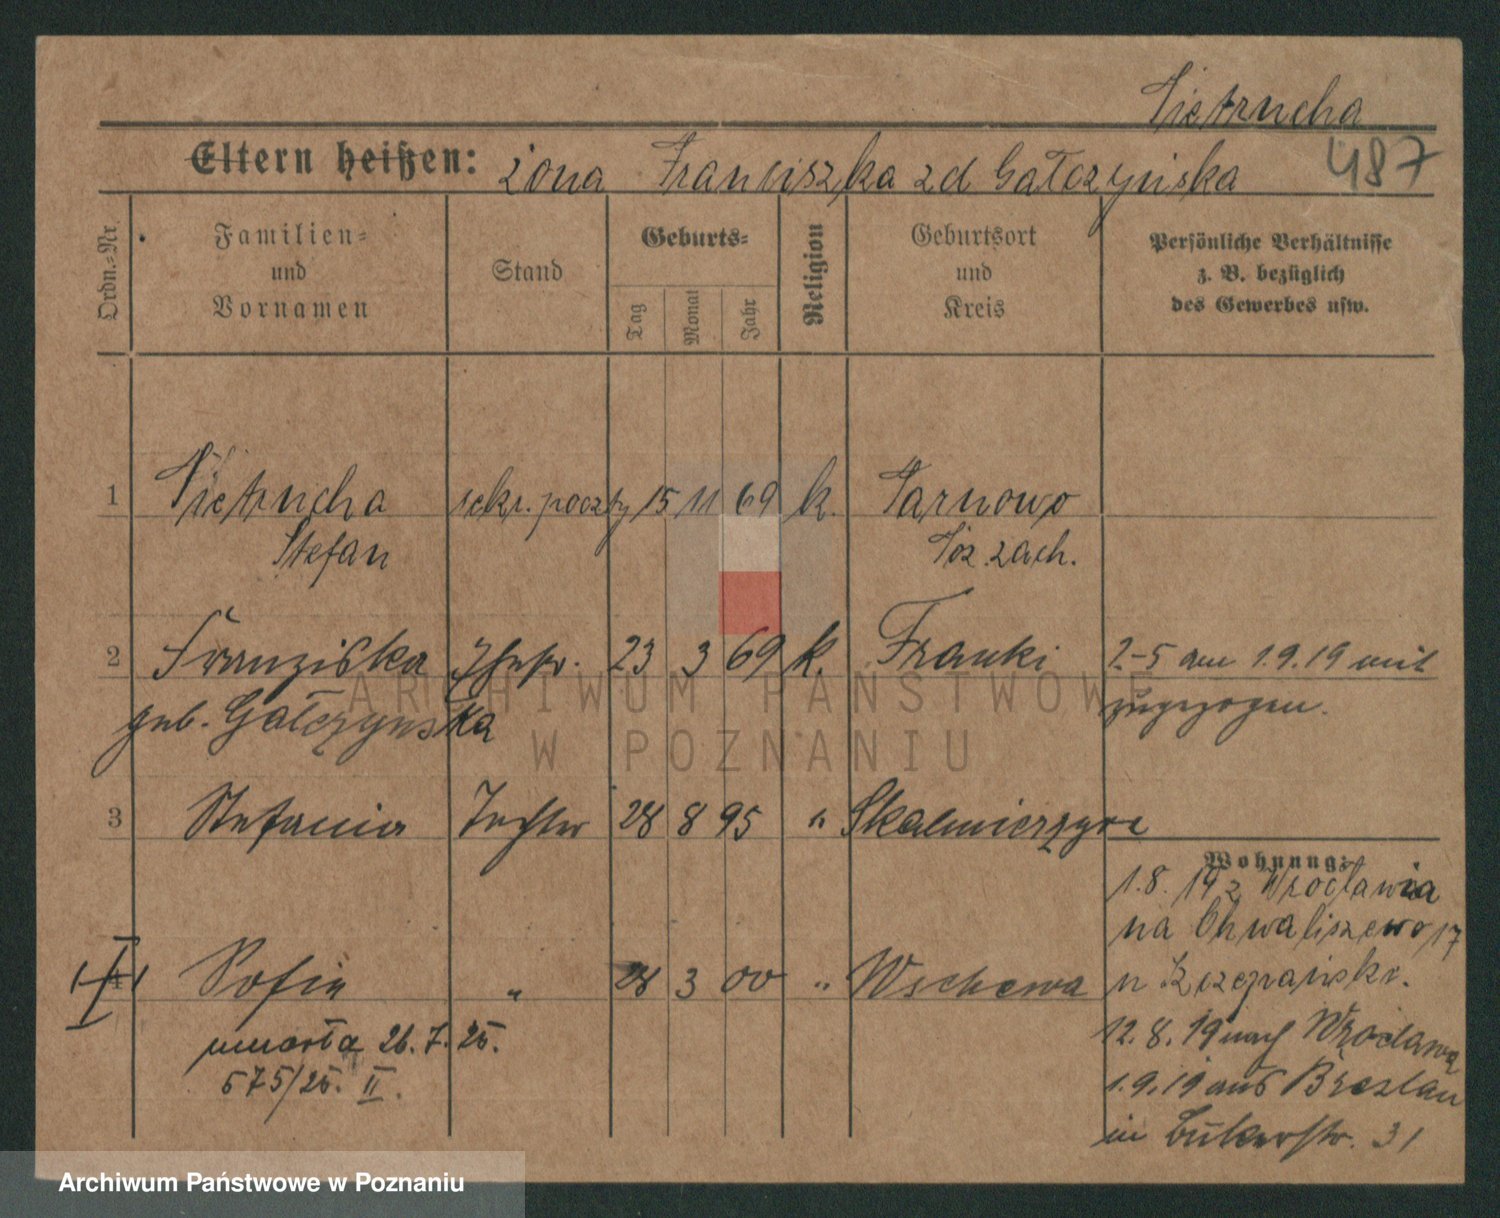 Pietrucha
Eltern heißen: żona Franciszka zd Gałczyńska 487
Ordn.-Nr.
Familien- und Vornamen
Stand
Geburts-
Tag
Monat
Jahr
Religion
Geburtsort und Kreis
Persönliche Verhältnisse z. B. bezüglich des Gewerbes usw.
1 Pietrucha sekr. poczty 15 11 69 k. Tarnowo
Stefan Poz. zach.
2 Franziska Ehefr. 23 3 69 k. Franki 2-5 am 1.9.19 mit
geb. Gałczynska zugezogen.
3 Stefania Tochter 28 8 95 " Skalmierzyce
Wohnung:
1.8.19 z Wrocławia
na Chwaliszewo 17
4 Sofia " 28 3 00 " Wschowa u
umarła 26.7.25. 12.8.19 nach Wrocławia
575/25. II. 1.9.19 aus Breslau
in Bukerstr. 31
ARCHIWUM PAŃSTWOWE
W POZNANIU
Archiwum Państwowe w Poznaniu